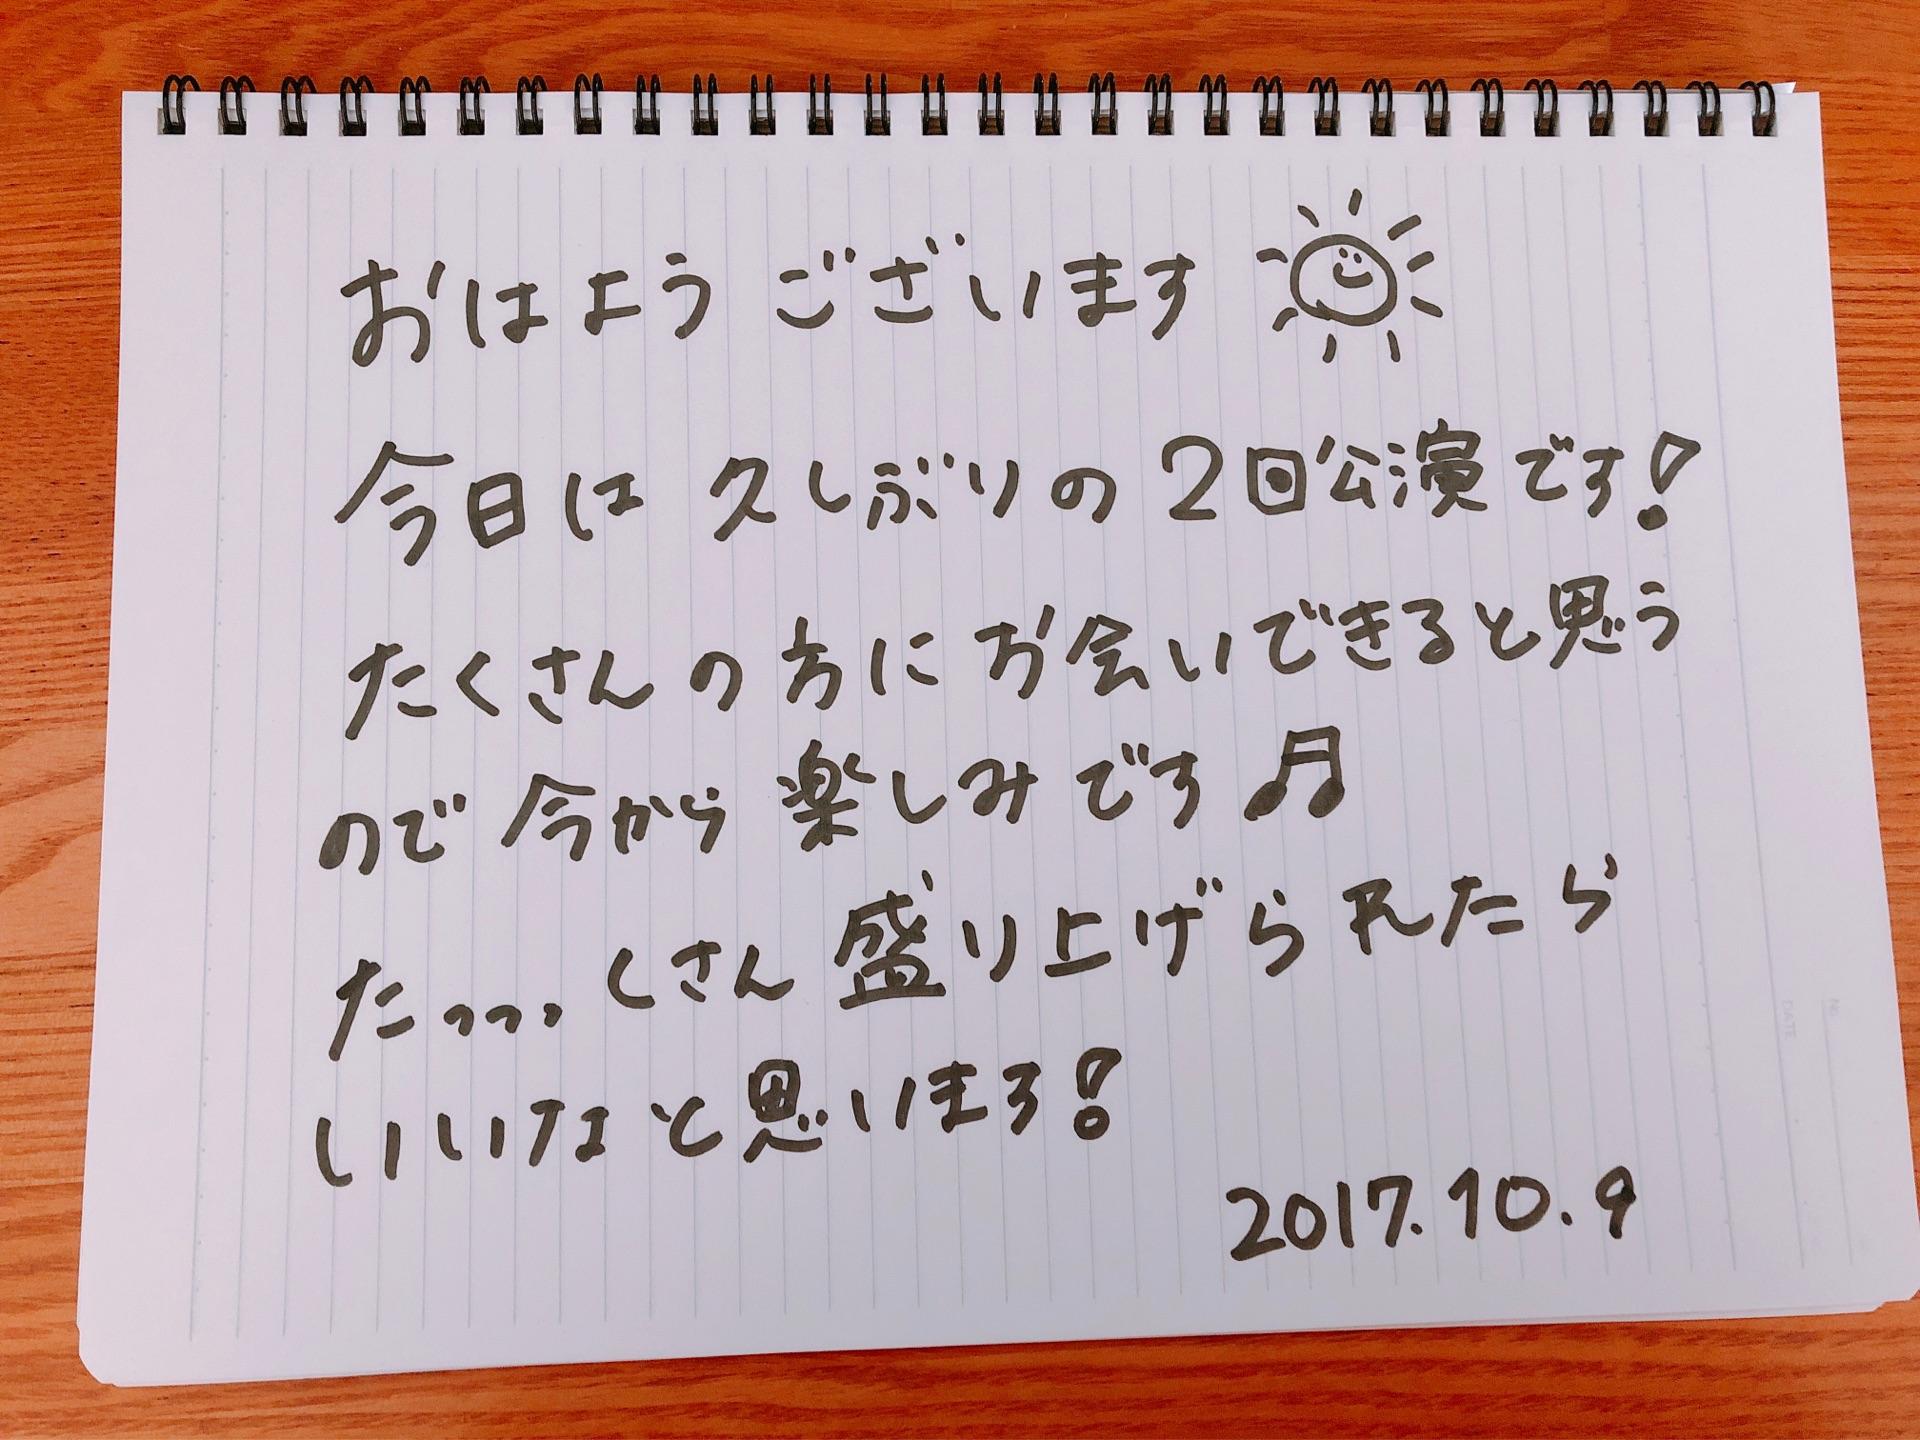 おはようございます
今日は久しぶりの2回公演です!
たくさんの方にお会いできると思う
ので今から楽しみです♫
たっっっくさん盛り上げられたら
いいなと思いまろ!
2017.10.9